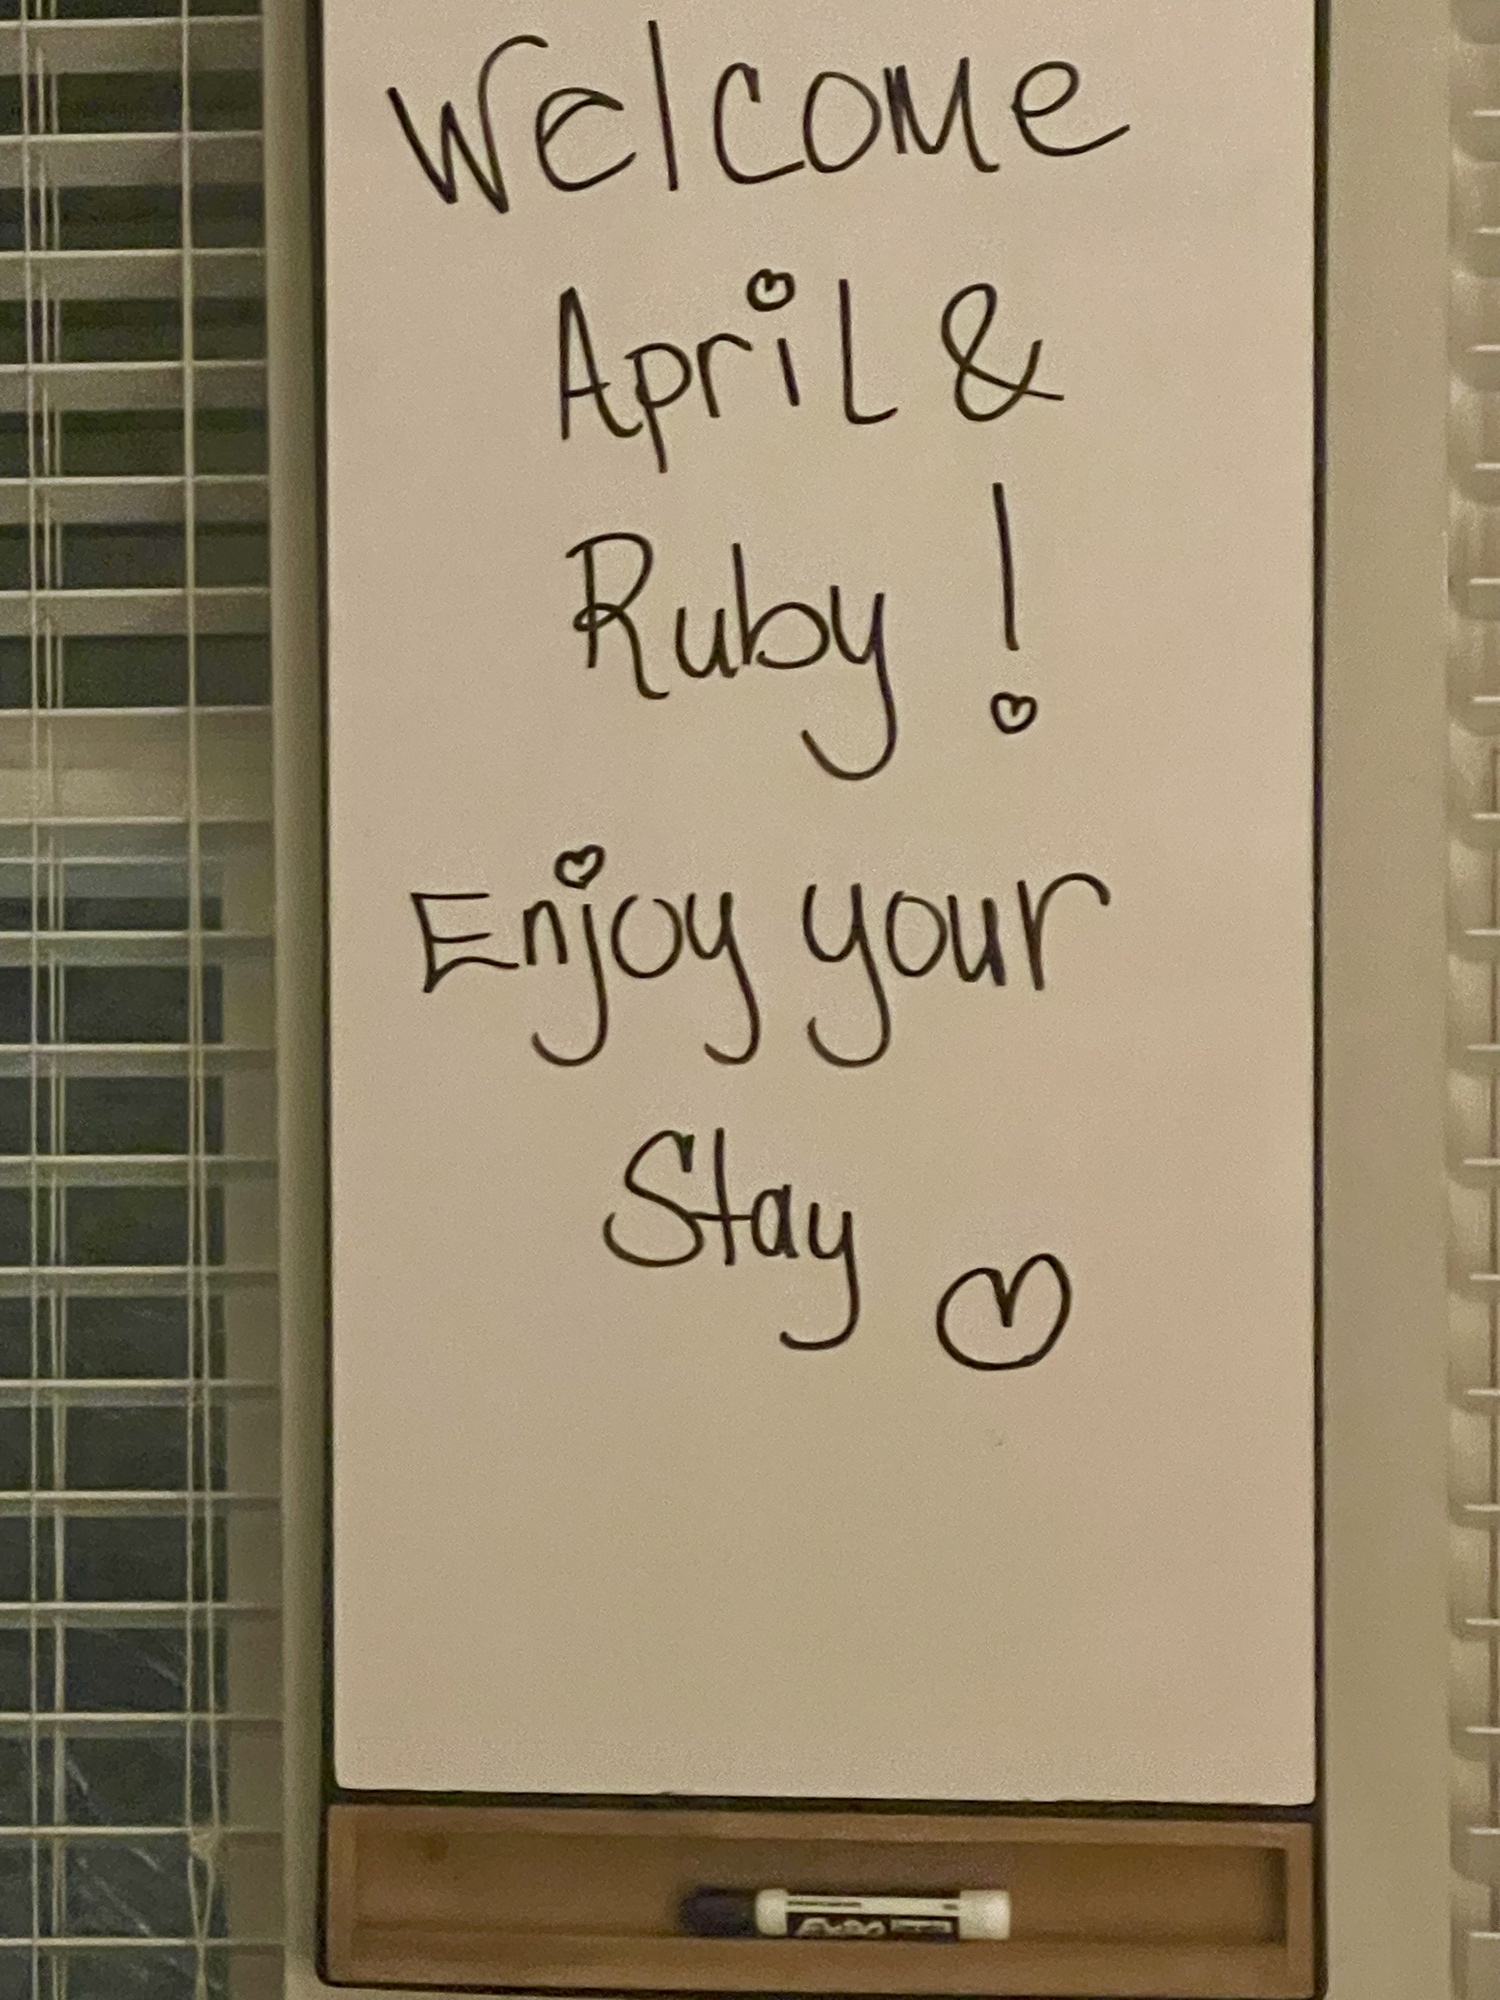 Welcome
April &
Ruby!
Enjoy your
Stay ♡
EXPO